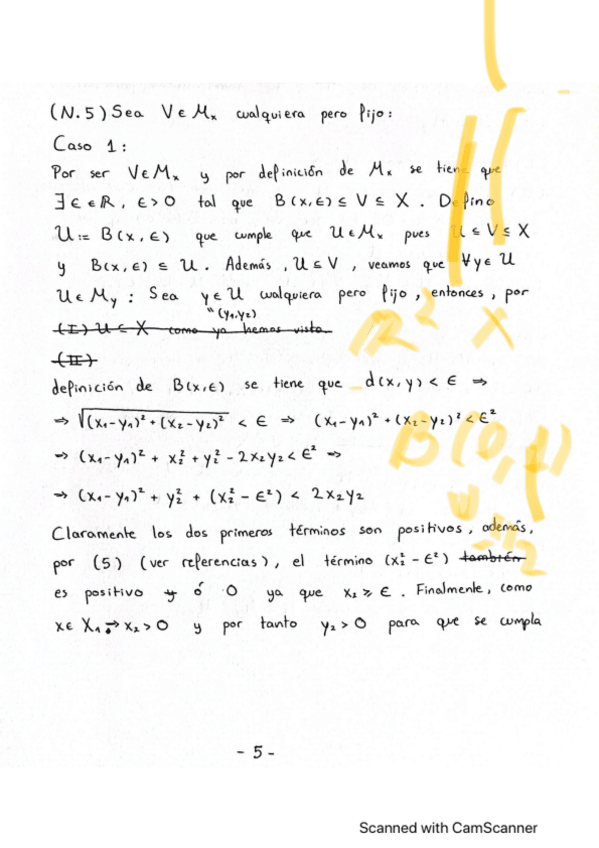 (N.5) Sea V ∈ Mₓ cualquiera pero fijo:
Caso 1:
Por ser V∈Mₓ y por definición de Mₓ se tiene que
∃ϵ∈ℝ, ϵ>0 tal que B(x,ϵ) ⊆ V ⊆ X. Defino
U:= B(x,ϵ) que cumple que U∈Mₓ pues U ⊆ V ⊆ X
y B(x,ϵ) ⊆ U. Además, U⊆V, veamos que ∀y∈U
U∈M_y : Sea y∈U cualquiera pero fijo, entonces, por
"(y₁,y₂)
(I) U ⊆ X como ya hemos visto.
(II)
ℝ² X
definición de B(x,ϵ) se tiene que d(x,y) < ϵ ⇒
⇒ √(x₁-y₁)²+(x₂-y₂)² < ϵ ⇒ (x₁-y₁)²+(x₂-y₂)²<ϵ²
B(0,1)
⇒ (x₁-y₁)² + x₂² + y₂² - 2x₂y₂ < ϵ² ⇒
⇒ (x₁-y₁)² + y₂² + (x₂² - ϵ²) < 2x₂y₂
Claramente los dos primeros términos son positivos, además,
por (5) (ver referencias), el término (x₂² - ϵ²) también
es positivo y ó 0 ya que x₂ ⩾ ϵ. Finalmente, como
x∈ X₁ ⇒ x₂>0 y por tanto y₂>0 para que se cumpla
- 5 -
Scanned with CamScanner